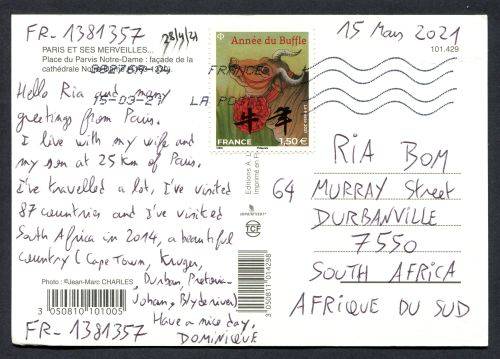 FR-1381357
28/4/21
PARIS ET SES MERVEILLES...
Place du Parvis Notre-Dame : façade de la
cathédrale
15-03-21
FRANCE
LA
Hello Ria and many
greetings from Paris.
I live with my wife and
my son at 25 km of Paris.
I've travelled a lot, I've visited
87 countries and I've visited
South Africa in 2014, a beautiful
country (Cape Town, Kruger,
Durban, Pretoria
Johan, Blyde river)
Have a nice day,
DOMINIQUE
Photo : ©Jean-Marc CHARLES
3 050810 101005
FR-1381357
Année du Buffle
牛年
FRANCE
1,50 €
3 050811 014298
TCF
15 Mars 2021
101.429
RIA BOM
64 MURRAY Street
DURBANVILLE
7550
SOUTH AFRICA
AFRIQUE DU SUD